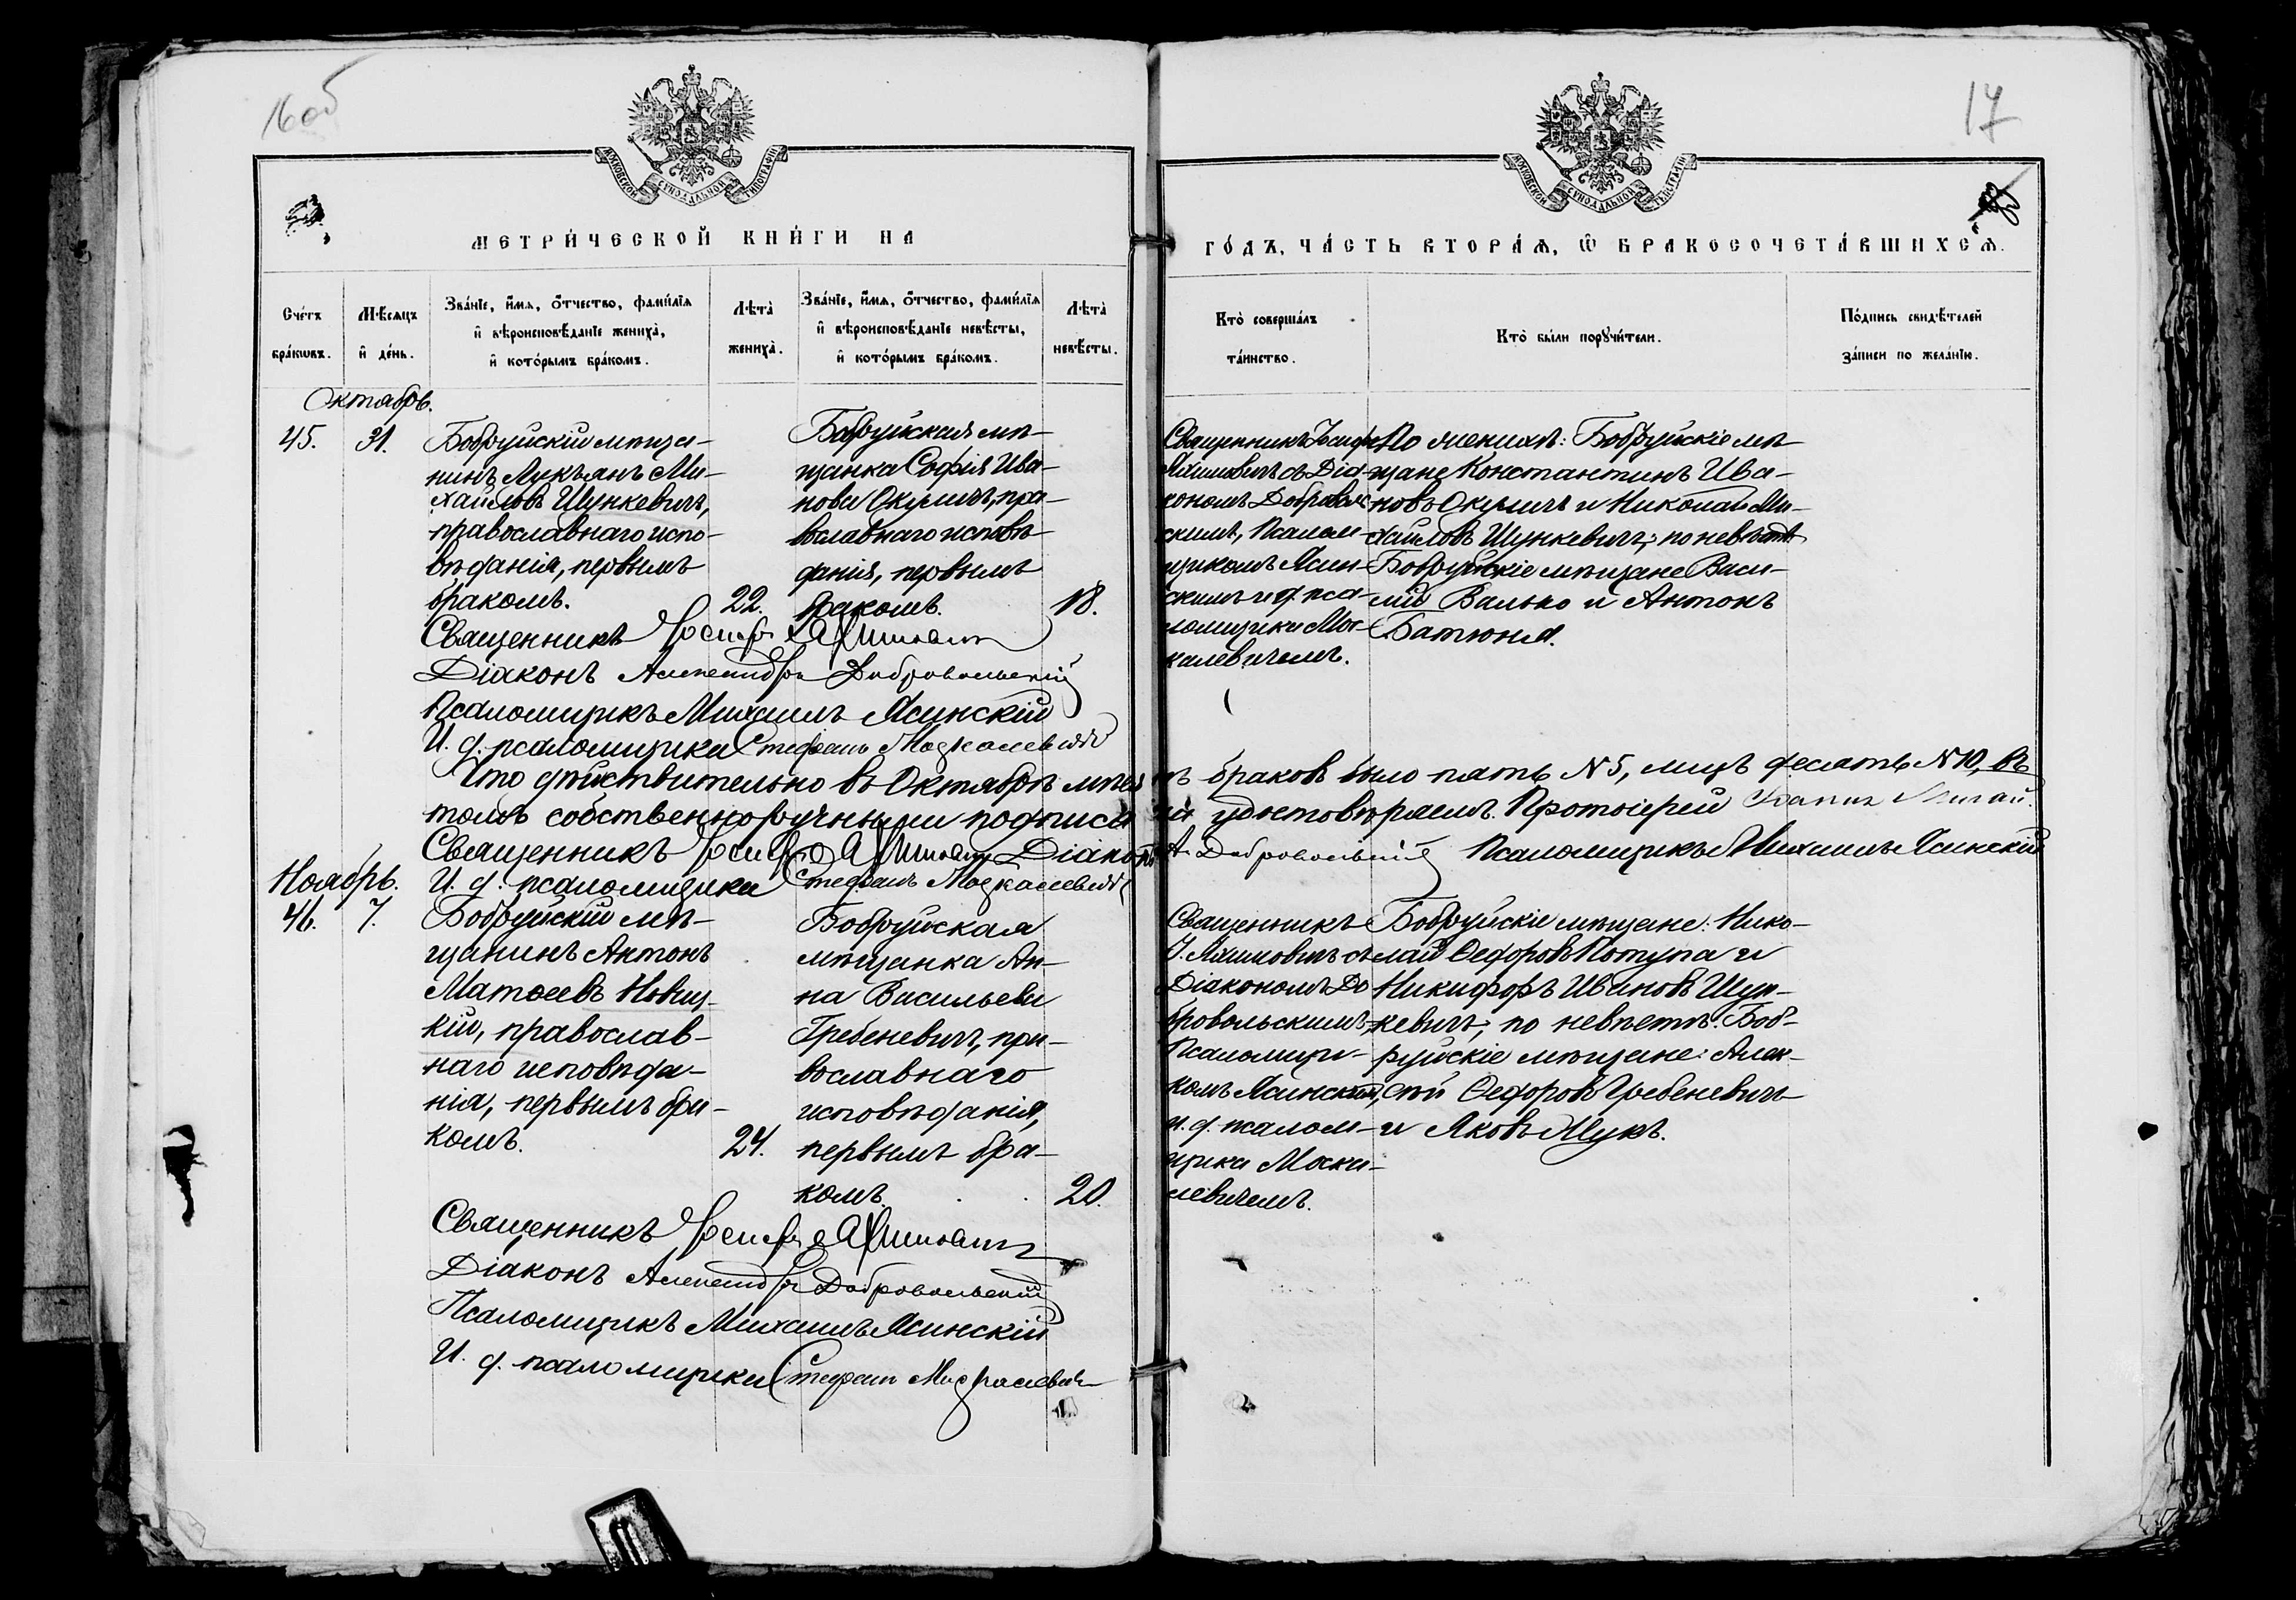 16об
17
МОСКОВСКОЙ СУНОДАЛЬНОЙ ТИПОГРАФІИ
МОСКОВСКОЙ СУНОДАЛЬНОЙ ТИПОГРАФІИ
МЕТРИ́ЧЕСКОЙ КНИ́ГИ НА
ГО́ДЪ, ЧА́СТЬ ВТОРА́Ѧ, Ѡ҆ БРАКОСОЧЕТА́ВШИХСѦ.
Сче́тъ
бра́кѡвъ.
Мѣ́сяцъ
и҆ де́нь.
Зва́нїе, и҆́мѧ, ѻ҆́тчество, фами́лїѧ
и҆ вѣроисповѣ́данїе жениха̀,
и҆ кото́рымъ бра́комъ.
Лѣта̀
жениха̀.
Зва́нїе, и҆́мѧ, ѻ҆́тчество, фами́лїѧ
и҆ вѣроисповѣ́данїе невѣ́сты,
и҆ кото́рымъ бра́комъ.
Лѣта̀
невѣ́сты.
Кто̀ соверша́лъ
та́инство.
Кто̀ бы́ли порꙋчи́тели.
По́дпись свидѣ́телей
за́писи по жела́нїю.
Октябрь.
45.
31.
Бобруйскій мѣща-
нинъ Лукъянъ Ми-
хайловъ Шункевичъ,
православнаго испо-
вѣданія, первымъ
бракомъ.
22.
Бобруйская мѣ-
щанка Софія Ива-
нова Окуличъ, пра-
вославнаго исповѣ-
данія, первымъ
бракомъ.
18.
Священникъ Іосифъ
Яхимовичъ съ Діа-
кономъ Добровольс-
кимъ, Псалом-
щикомъ Ясин-
скимъ и д. пса-
ломщика Мос-
калевичемъ.
По женихѣ: Бобруйскіе мѣ-
щане Константинъ Ива-
новъ Окуличъ и Николай Ми-
хайловъ Шункевичъ; по невѣстѣ
Бобруйскіе мѣщане Васи-
лій Валько и Антонъ
Батюня.
Священникъ Іосифъ Яхимовичъ
Діаконъ Александръ Добровольскій
Псаломщикъ Михаилъ Ясинскій
И. д. псаломщика Стефанъ Москалевичъ
Что дѣйствительно въ Октябрѣ мѣсяцѣ браковъ было пять № 5, лицъ десять № 10, въ
томъ собственноручными подписями удостовѣряемъ. Протоіерей Іоаннъ
Священникъ Іосифъ Яхимовичъ Діаконъ А. Добровольскій Псаломщикъ Михаилъ Ясинскій
И. д. псаломщика Стефанъ Москалевичъ
Ноябрь.
46.
7.
Бобруйскій мѣ-
щанинъ Антонъ
Матѳеевъ Новиц-
кій, православ-
наго исповѣда-
нія, первымъ бра-
комъ.
24.
Бобруйская
мѣщанка Ан-
на Васильева
Гребеневичъ, пра-
вославнаго
исповѣданія,
первымъ бра-
комъ
20.
Священникъ
І. Яхимовичъ съ
Діакономъ До
бровольскимъ,
Псаломщи-
комъ Ясинскимъ,
и. д. псалом-
щика Моска-
левичемъ.
Бобруйскіе мѣщане: Нико-
лай Ѳедоровъ Потупа и
Никифоръ Ивановъ Шун-
кевичъ; по невѣстѣ: Боб-
руйскіе мѣщане: Алек-
сѣй Ѳедоровъ Гребеневичъ
и Яковъ Мукъ.
Священникъ Іосифъ Яхимовичъ
Діаконъ Александръ Добровольскій
Псаломщикъ Михаилъ Ясинскій
И. д. псаломщика Стефанъ Москалевичъ